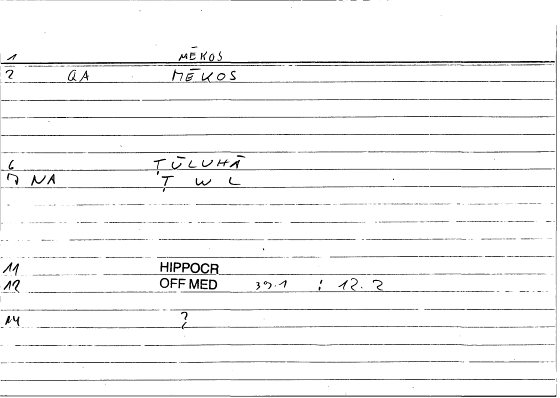 1 MĒKOS
2 QA MĒKOS
6 ṬŪLUHĀ
7 NA Ṭ W L
11 HIPPOCR
12 OFF MED 39.1 : 12.2
14 ?